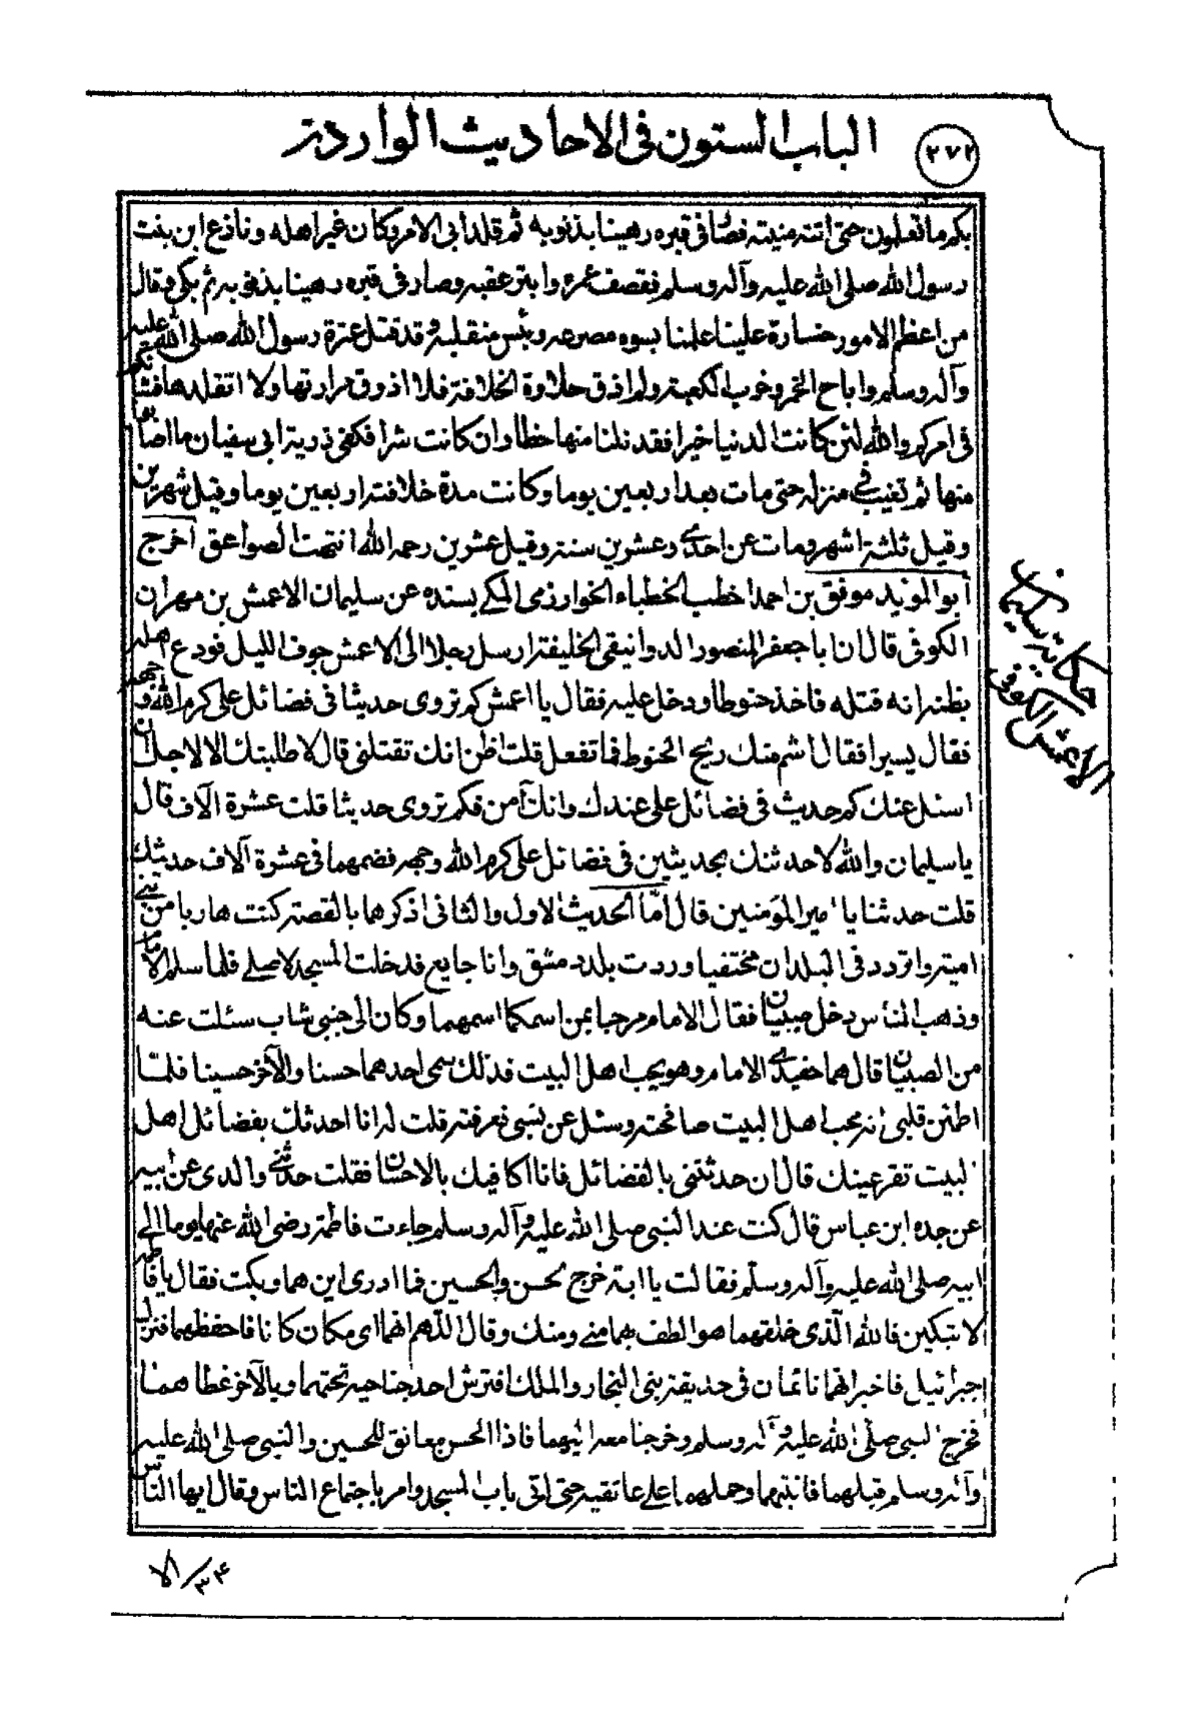 الباب الستون فى الاحاديث الواردة
٢٧٢
بكم ما تعلمون حتى اتته منيته فصار فى قبره رهينا بذنوبه ثم قلد ابى الامر وكان غير اهله ونازع ابن بنت
رسول الله صلى الله عليه وآله وسلم فقصف عمره وابتر عقبه وصار فى قبره رهينا بذنوبه ثم بكى وقال
من اعظم الامور خسارة علينا علمنا بسوء مصرعه وبئس منقلبه وقد قتل عترة رسول الله صلى الله عليه
وآله وسلم واباح الخمر وخرب الكعبة ولم اذق حلاوة الخلافة فلا اذوق مرارتها ولا اتقلدها فشانكم
فى امركم والله لئن كانت الدنيا خيرا فقد نلنا منها حظا وان كانت شرا فكفى ذرية ابى سفيان ما اصابوا
منها ثم تغيب فى منزله حتى مات بعد اربعين يوما وكانت مدة خلافته اربعين يوما وقيل شهرين
وقيل ثلثة اشهر ومات عن احدى وعشرين سنة وقيل عشرين رحمه الله انتهت الصواعق اخرج
ابو المؤيد موفق بن احمد اخطب الخطباء الخوارزمى المكى بسنده عن سليمان الاعمش بن مهران
الكوفى قال ان ابا جعفر المنصور الدوانيقى الخليفة ارسل رجلا الى الاعمش جوف الليل فودع اهله
بظنه انه قتله فاخذ حنوطا ودخل عليه فقال يا اعمش كم تروى حديثا فى فضائل على كرم الله وجهه
فقال يسيرا فقال اشم منك ريح الحنوط فما تفعل قلت اظن انك تقتلنى قال لا طلبتك الا لاجل ان
اسئل عنك كم حديث فى فضائل على عندك وانك آمن فكم تروى حديثا قلت عشرة آلاف قال
يا سليمان والله لاحدثنك بحديثين فى فضائل على كرم الله وجهه فضمهما فى عشرة آلاف حديثك
قلت حدثنا يا امير المؤمنين قال اما الحديث الاول والثانى اذكرهما بالقصة كنت هاربا من بنى
امية واتردد فى البلدان مختفيا وردت بلدة دمشق وانا جايع فدخلت المسجد لاصلى فلما سلم الامام
وذهب الناس دخل صبيان فقال الامام مرحبا بمن اسمكما اسمهما وكان الى جنبى شاب سئلت عنه
من الصبيان قال هما حفيدى الامام وهو يحب اهل البيت فذلك سمى احدهما حسنا والآخر حسينا فلما
اطمئن قلبى انه محب اهل البيت صافحته وسئل عن نسبى فعرفته قلت له انا احدثك بفضائل اهل
البيت تقر عينك قال ان حدثتنى بالفضائل فانا اكافيك بالاحسان فقلت حدثنى والدى عن ابيه
عن جده ابن عباس قال كنت عند النبى صلى الله عليه وآله وسلم جاءت فاطمة رضى الله عنها يوما الى
ابيه صلى الله عليه وآله وسلم فقالت يا ابت خرج الحسن والحسين فما ادرى اين هما وبكت فقال يا فاطمة
لا تبكين فالله الذى خلقهما هو الطف بهما منى ومنك وقال اللهم انهما اى مكان كانا فاحفظهما فنزل
جبرائيل فاخبر انهما نائمان فى حديقة بنى النجار والملك افترش احد جناحيه تحتهما وبالآخر غطاهما
فخرج النبى صلى الله عليه وآله وسلم وخرجنا معه اليهما فاذا الحسن معانق للحسين والنبى صلى الله عليه
وآله وسلم قبلهما فانتبها وحملهما على عاتقيه حتى اتى باب المسجد وامر باجتماع الناس وقال ايها الناس
حكاية سليمان
الاعمش الكوفى
٣٤/الا